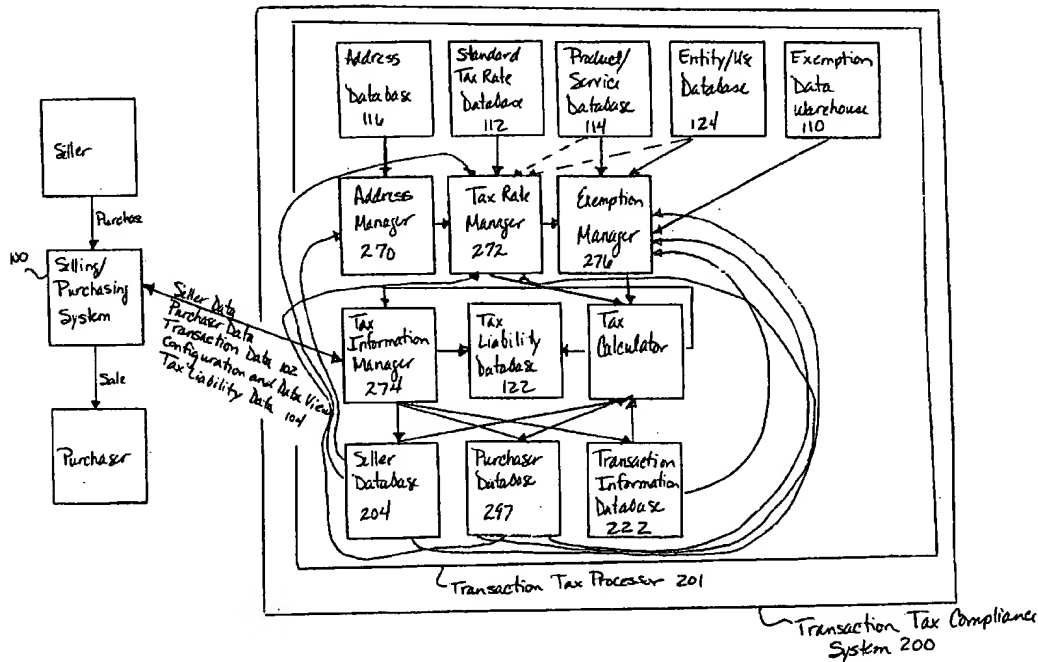 Seller
Purchase
100
Selling/
Purchasing
System
Sale
Purchaser
Seller Data
Purchaser Data
Transaction Data 102
Configuration and Data View
Tax Liability Data 104
Address
Database
116
Standard
Tax Rate
Database
112
Product/
Service
Database
114
Entity/Use
Database
124
Exemption
Data
Warehouse
110
Address
Manager
270
Tax Rate
Manager
272
Exemption
Manager
276
Tax
Information
Manager
274
Tax
Liability
Database
122
Tax
Calculator
Seller
Database
204
Purchaser
Database
297
Transaction
Information
Database
222
Transaction Tax Processor 201
Transaction Tax Compliance
System 200